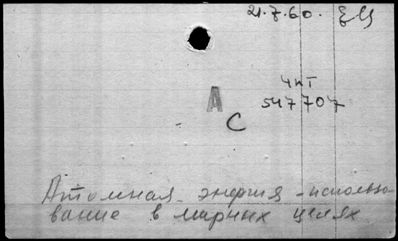 21.7.60. ЕЦ
ЧПТ
А 547707
С
Атомная энергия - использо-
вание в мирных целях